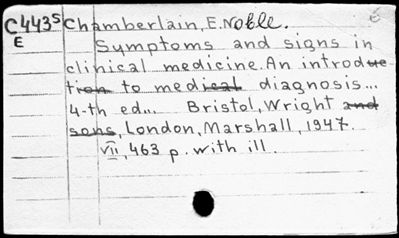 C443s Chamberlain, E. Noble.
E
Symptoms and signs in
clinical medicine. An introduc
tion to medical diagnosis...
4-th ed... Bristol, Wright and
sons, London, Marshall, 1947.
VII, 463 p. with ill.